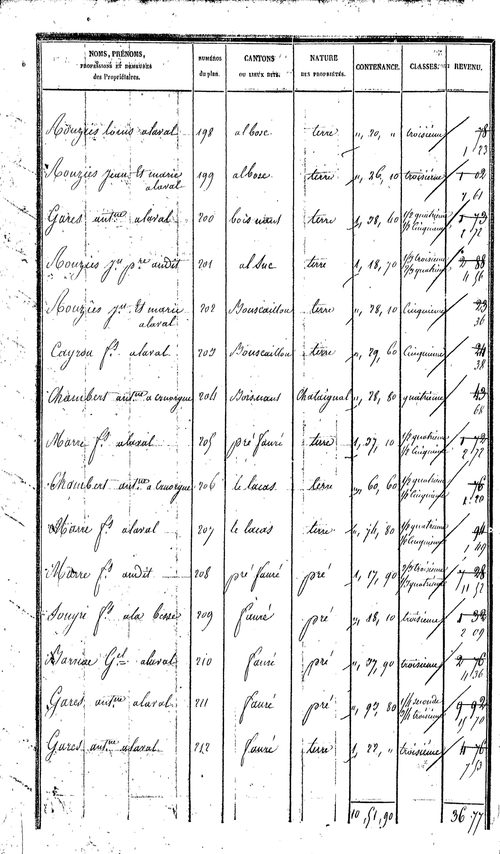 NOMS, PRÉNOMS, PROFESSIONS ET DEMEURES des Propriétaires. NUMÉROS du plan. CANTONS OU LIEUX DITS. NATURE DES PROPRIÉTÉS. CONTENANCE. CLASSES. REVENU.
Rouziès louis alaval 198 albosc terre „ 20 „ troisième 78
1 23
Rouziès jean Et marie alaval 199 albosc terre „ 26, 10 troisième 1 02
1 61
Gares ant.ne alaval 200 bois nant terre 1, 38, 60 1/2 quatrième 1/2 Cinquième 1 73
2 72
Rouziès j.n p.re audit 201 al suc terre 1, 18, 70 1/2 troisième 1/2 quatrième
Rouziès j.n Et marie alaval 202 Bouscaillou terre „ 28, 10 Cinquième 23
36
Cayrou f.s alaval 203 Bouscaillou terre „ 29, 60 Cinquième 24
38
Chambert ant.ne a cruorgue 204 Boisnant Chataignal „ 28, 80 quatrième 43
68
Marre f.s alaval 205 pré fauré terre 1, 37, 10 1/2 quatrième 1/2 Cinquième 1 72
2 72
Chambert ant.ne a cruorgue 206 le lacas terre „ 60, 60 1/2 quatrième 1/2 Cinquième 76
1 20
Marre f.s alaval 207 le lacas terre „ 74, 80 1/2 quatrième 1/2 Cinquième 94
1 49
Marre f.s audit 208 pré fauré pré 1, 17, 90 2/3 troisième 1/3 quatrième 7 28
11 52
f.s ala bosse 209 fauré pré „ 18, 10 troisième 1 32
2 09
G.el alaval 210 fauré pré „ 37, 90 troisième 2 76
4 36
Gares ant.ne alaval 211 fauré pré „ 97, 80 1/4 seconde 3/4 troisième 9 92
15 70
Gares ant.ne alaval 212 fauré terre 1, 22, „ troisième 4 76
7 53
10, 51, 90 36 77